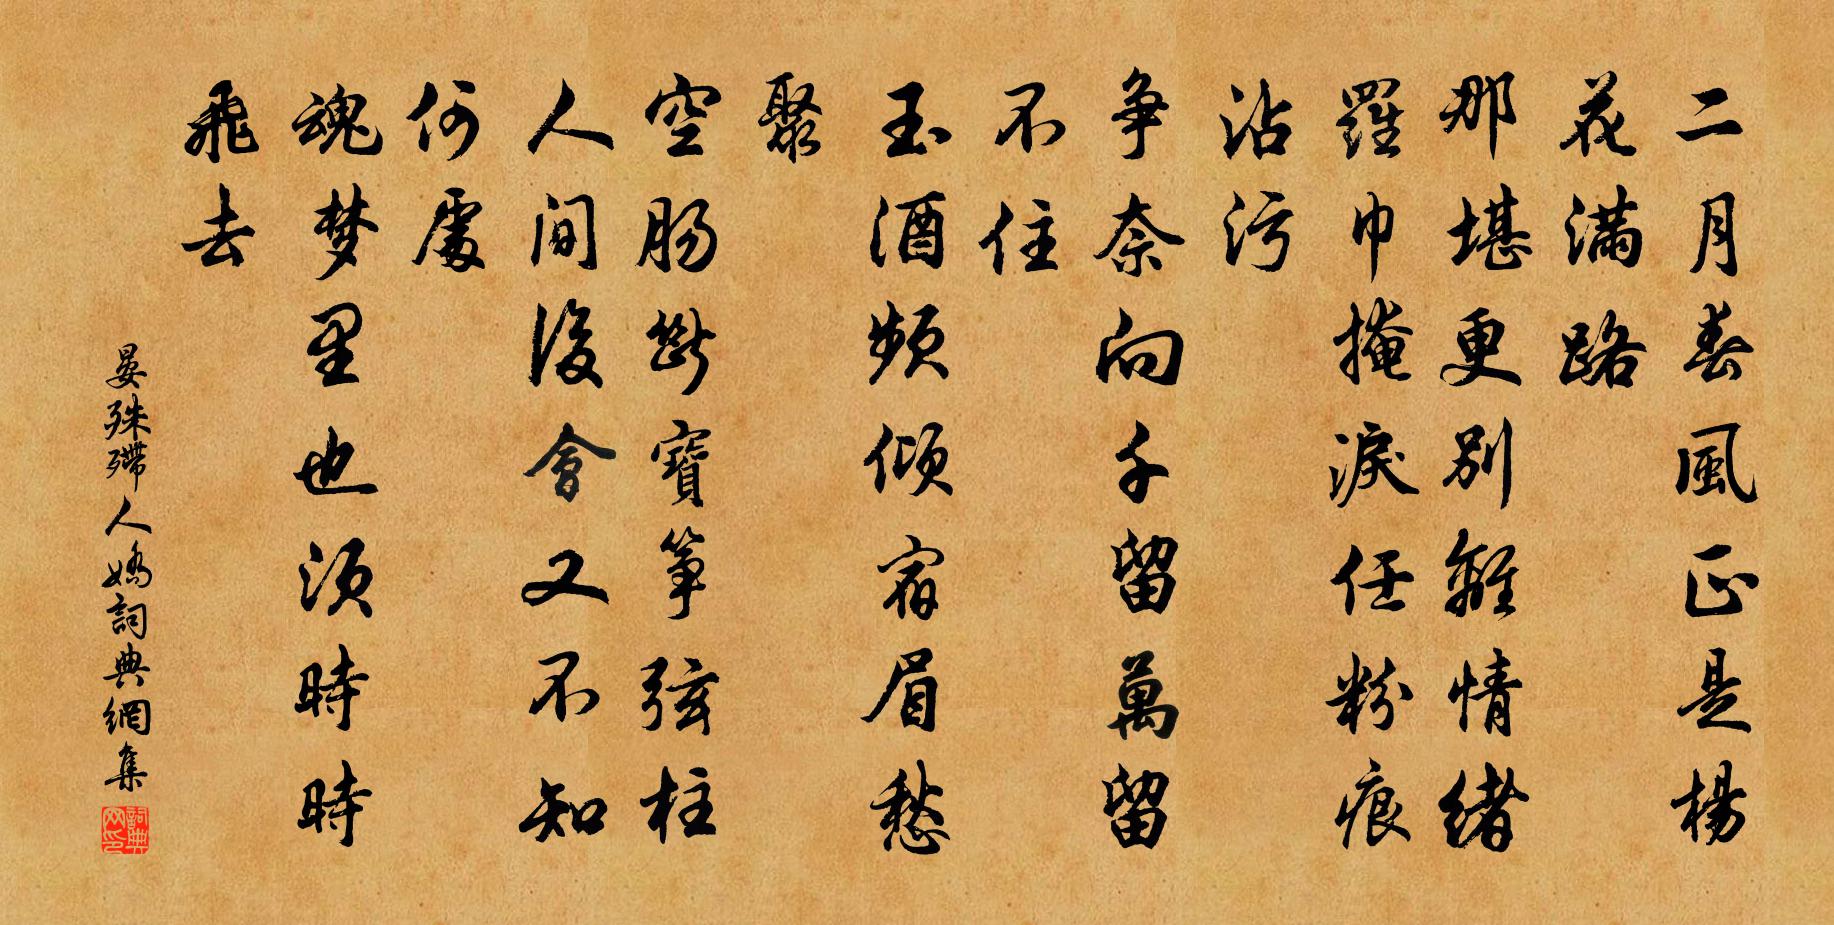 二月春風正是楊
花滿路
那堪更别離情緒
羅巾掩淚任粉痕
沾污
争奈向千留萬留
不住
玉酒頻傾宿眉愁
聚
空腸斷寶箏弦柱
人間後會又不知
何處
魂梦里也須時時
飛去
晏殊殢人嬌詞典網集
詞典网印